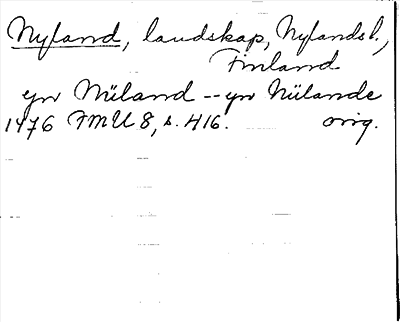 Nyland, landskap, Nylandsl.,
Finland
yn Nüland -- yn Nülande
1476 FMU 8, s. 416. orig.